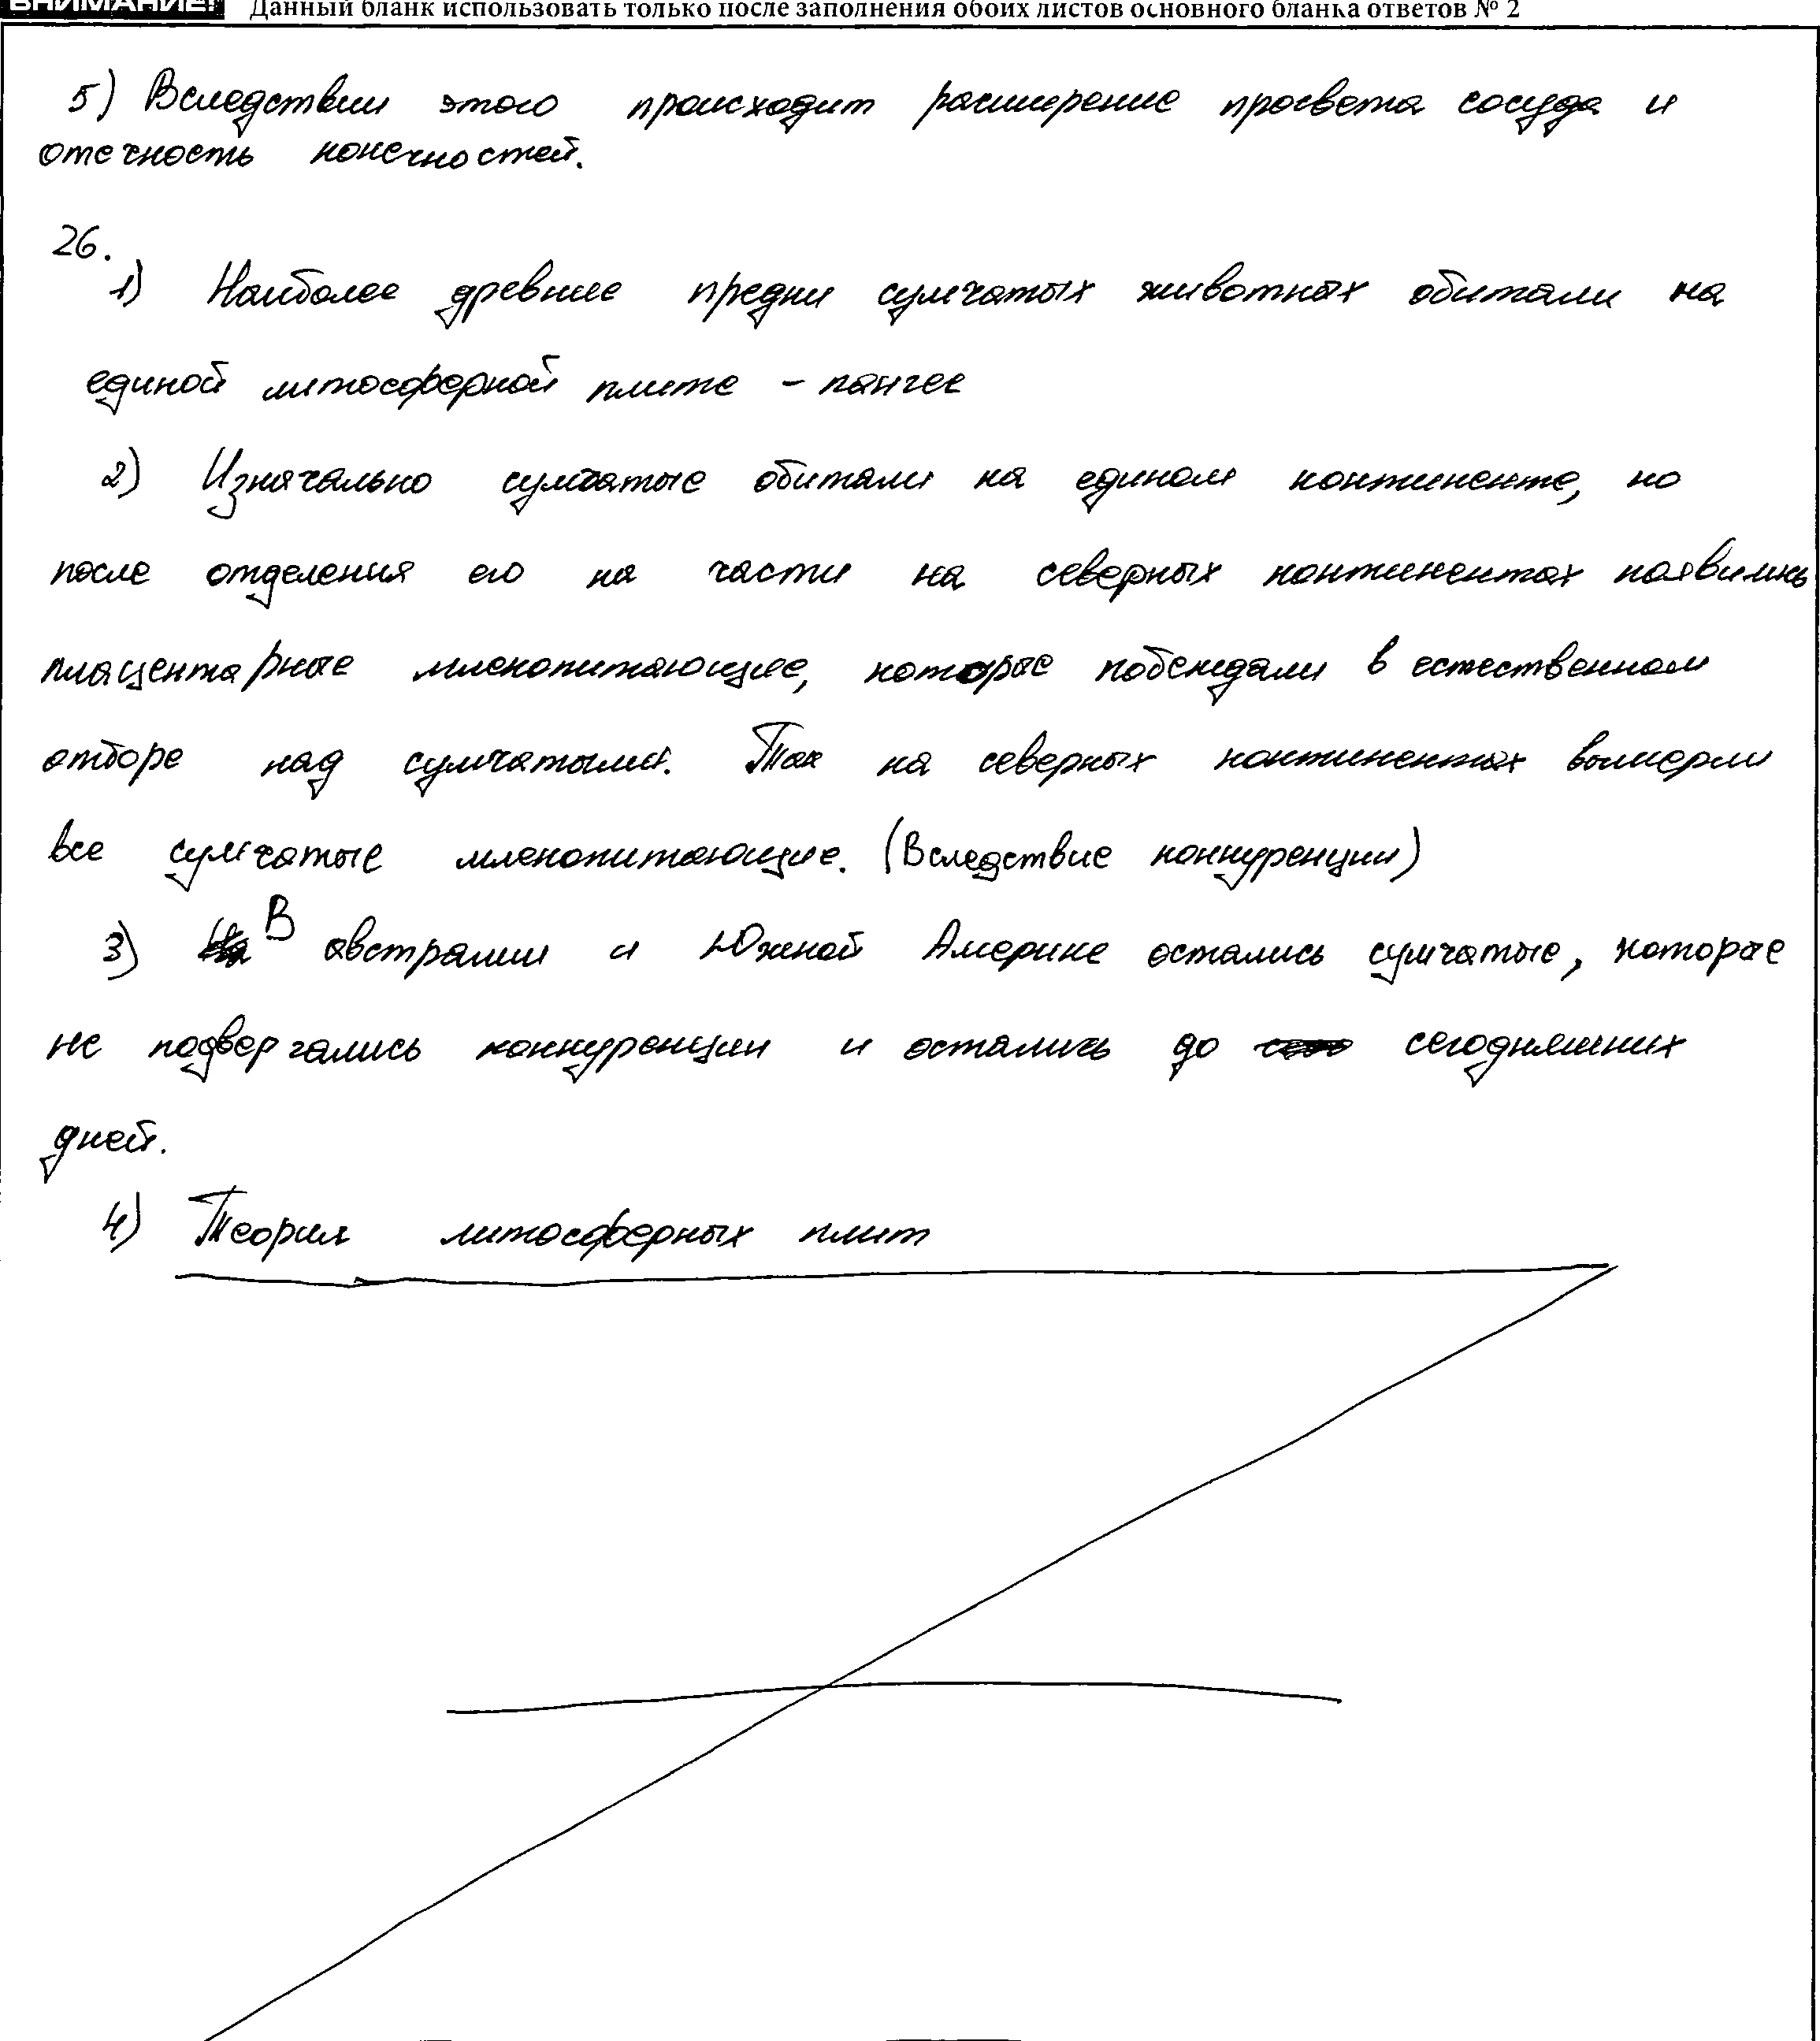 ВНИМАНИЕ! Данный бланк использовать только после заполнения обоих листов основного бланка ответов № 2
5) Вследствии этого происходит расширение просвета сосуда и
отечность конечностей.
26.
1) Наиболее древние предки сумчатых животных обитали на
единой литосферной плите - пангее
2) Изначально сумчатые обитали на едином континенте, но
после отделения его на части на северных континентах появились
плацентарные млекопитающие, которые побеждали в естественном
отборе над сумчатыми. Так на северных континентах вымерли
все сумчатые млекопитающие. (Вследствие конкуренции)
3) В австралии и Южной Америке остались сумчатые, которые
не подвергались конкуренции и остались до сегодняшних
дней.
4) Теория литосферных плит